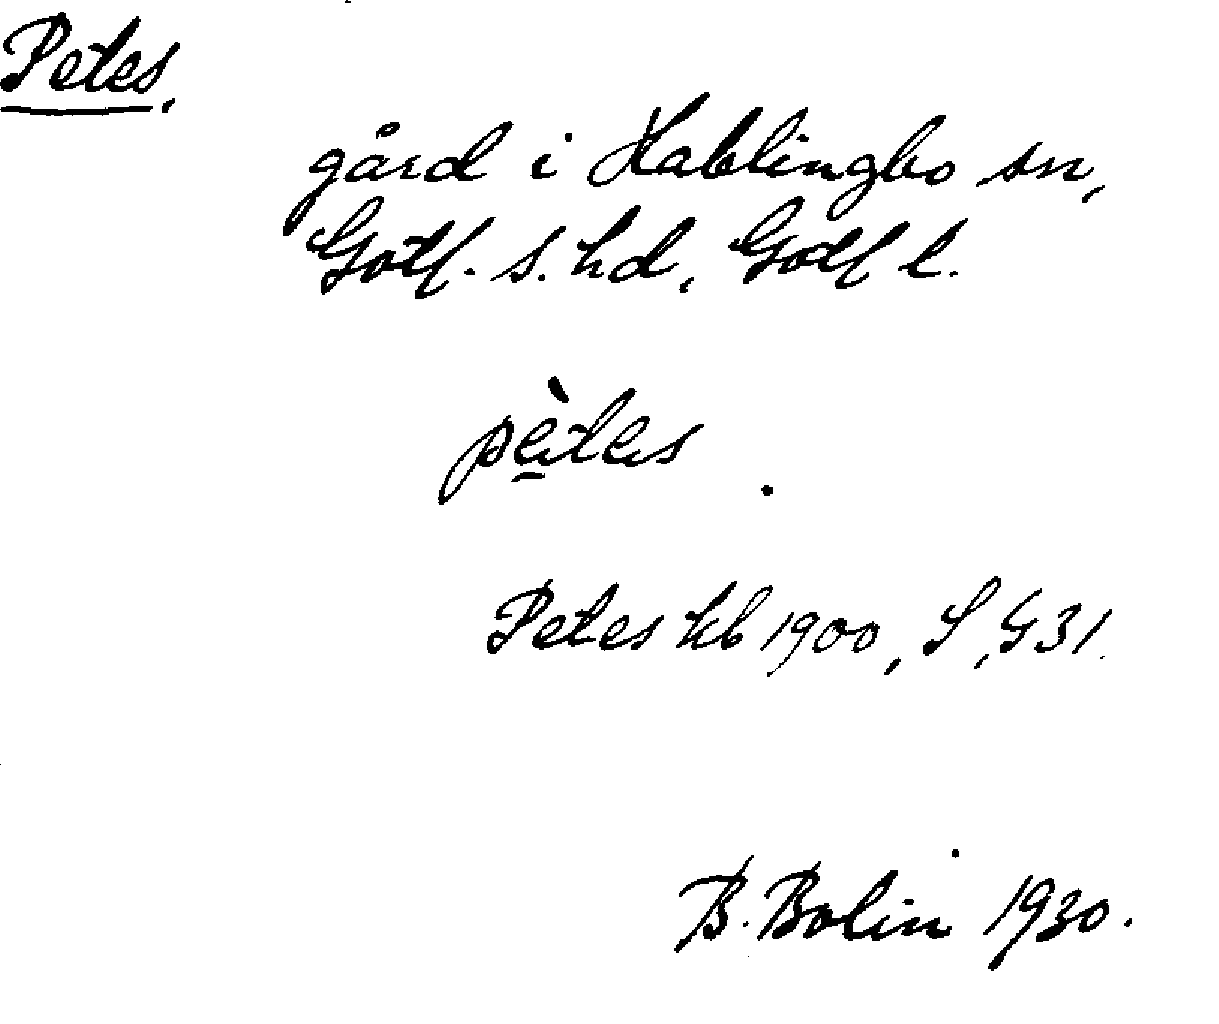 Petes,
gård i Hablingbo sn,
Gotl. s. hd, Gotl l.
pètes.
Petes kb 1900, S, G 31.
B. Bolin 1930.